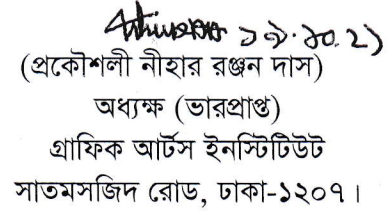 ১৯.১০.২১
(প্রকৌশলী নীহার রঞ্জন দাস)
অধ্যক্ষ (ভারপ্রাপ্ত)
গ্রাফিক আর্টস ইনস্টিটিউট
সাতমসজিদ রোড, ঢাকা-১২০৭।